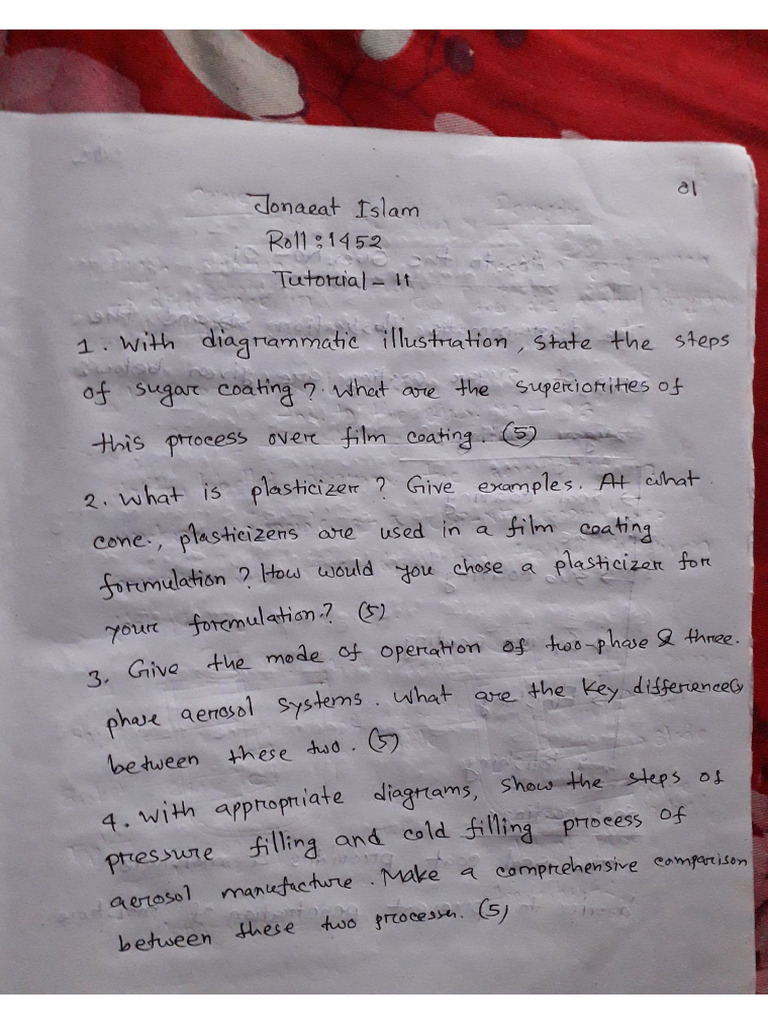 01
Jonaeat Islam
Roll: 1452
Tutorial - 11
1. With diagrammatic illustration, state the steps
of sugar coating? What are the superiorities of
this process over film coating. (5)
2. What is plasticizer? Give examples. At what
conc., plasticizers are used in a film coating
formulation? How would you chose a plasticizer for
your formulation? (5)
3. Give the mode of operation of two-phase & three.
phase aerosol systems. What are the key differences
between these two. (5)
4. With appropriate diagrams, show the steps of
pressure filling and cold filling process of
aerosol manufacture. Make a comprehensive comparison
between these two processes. (5)